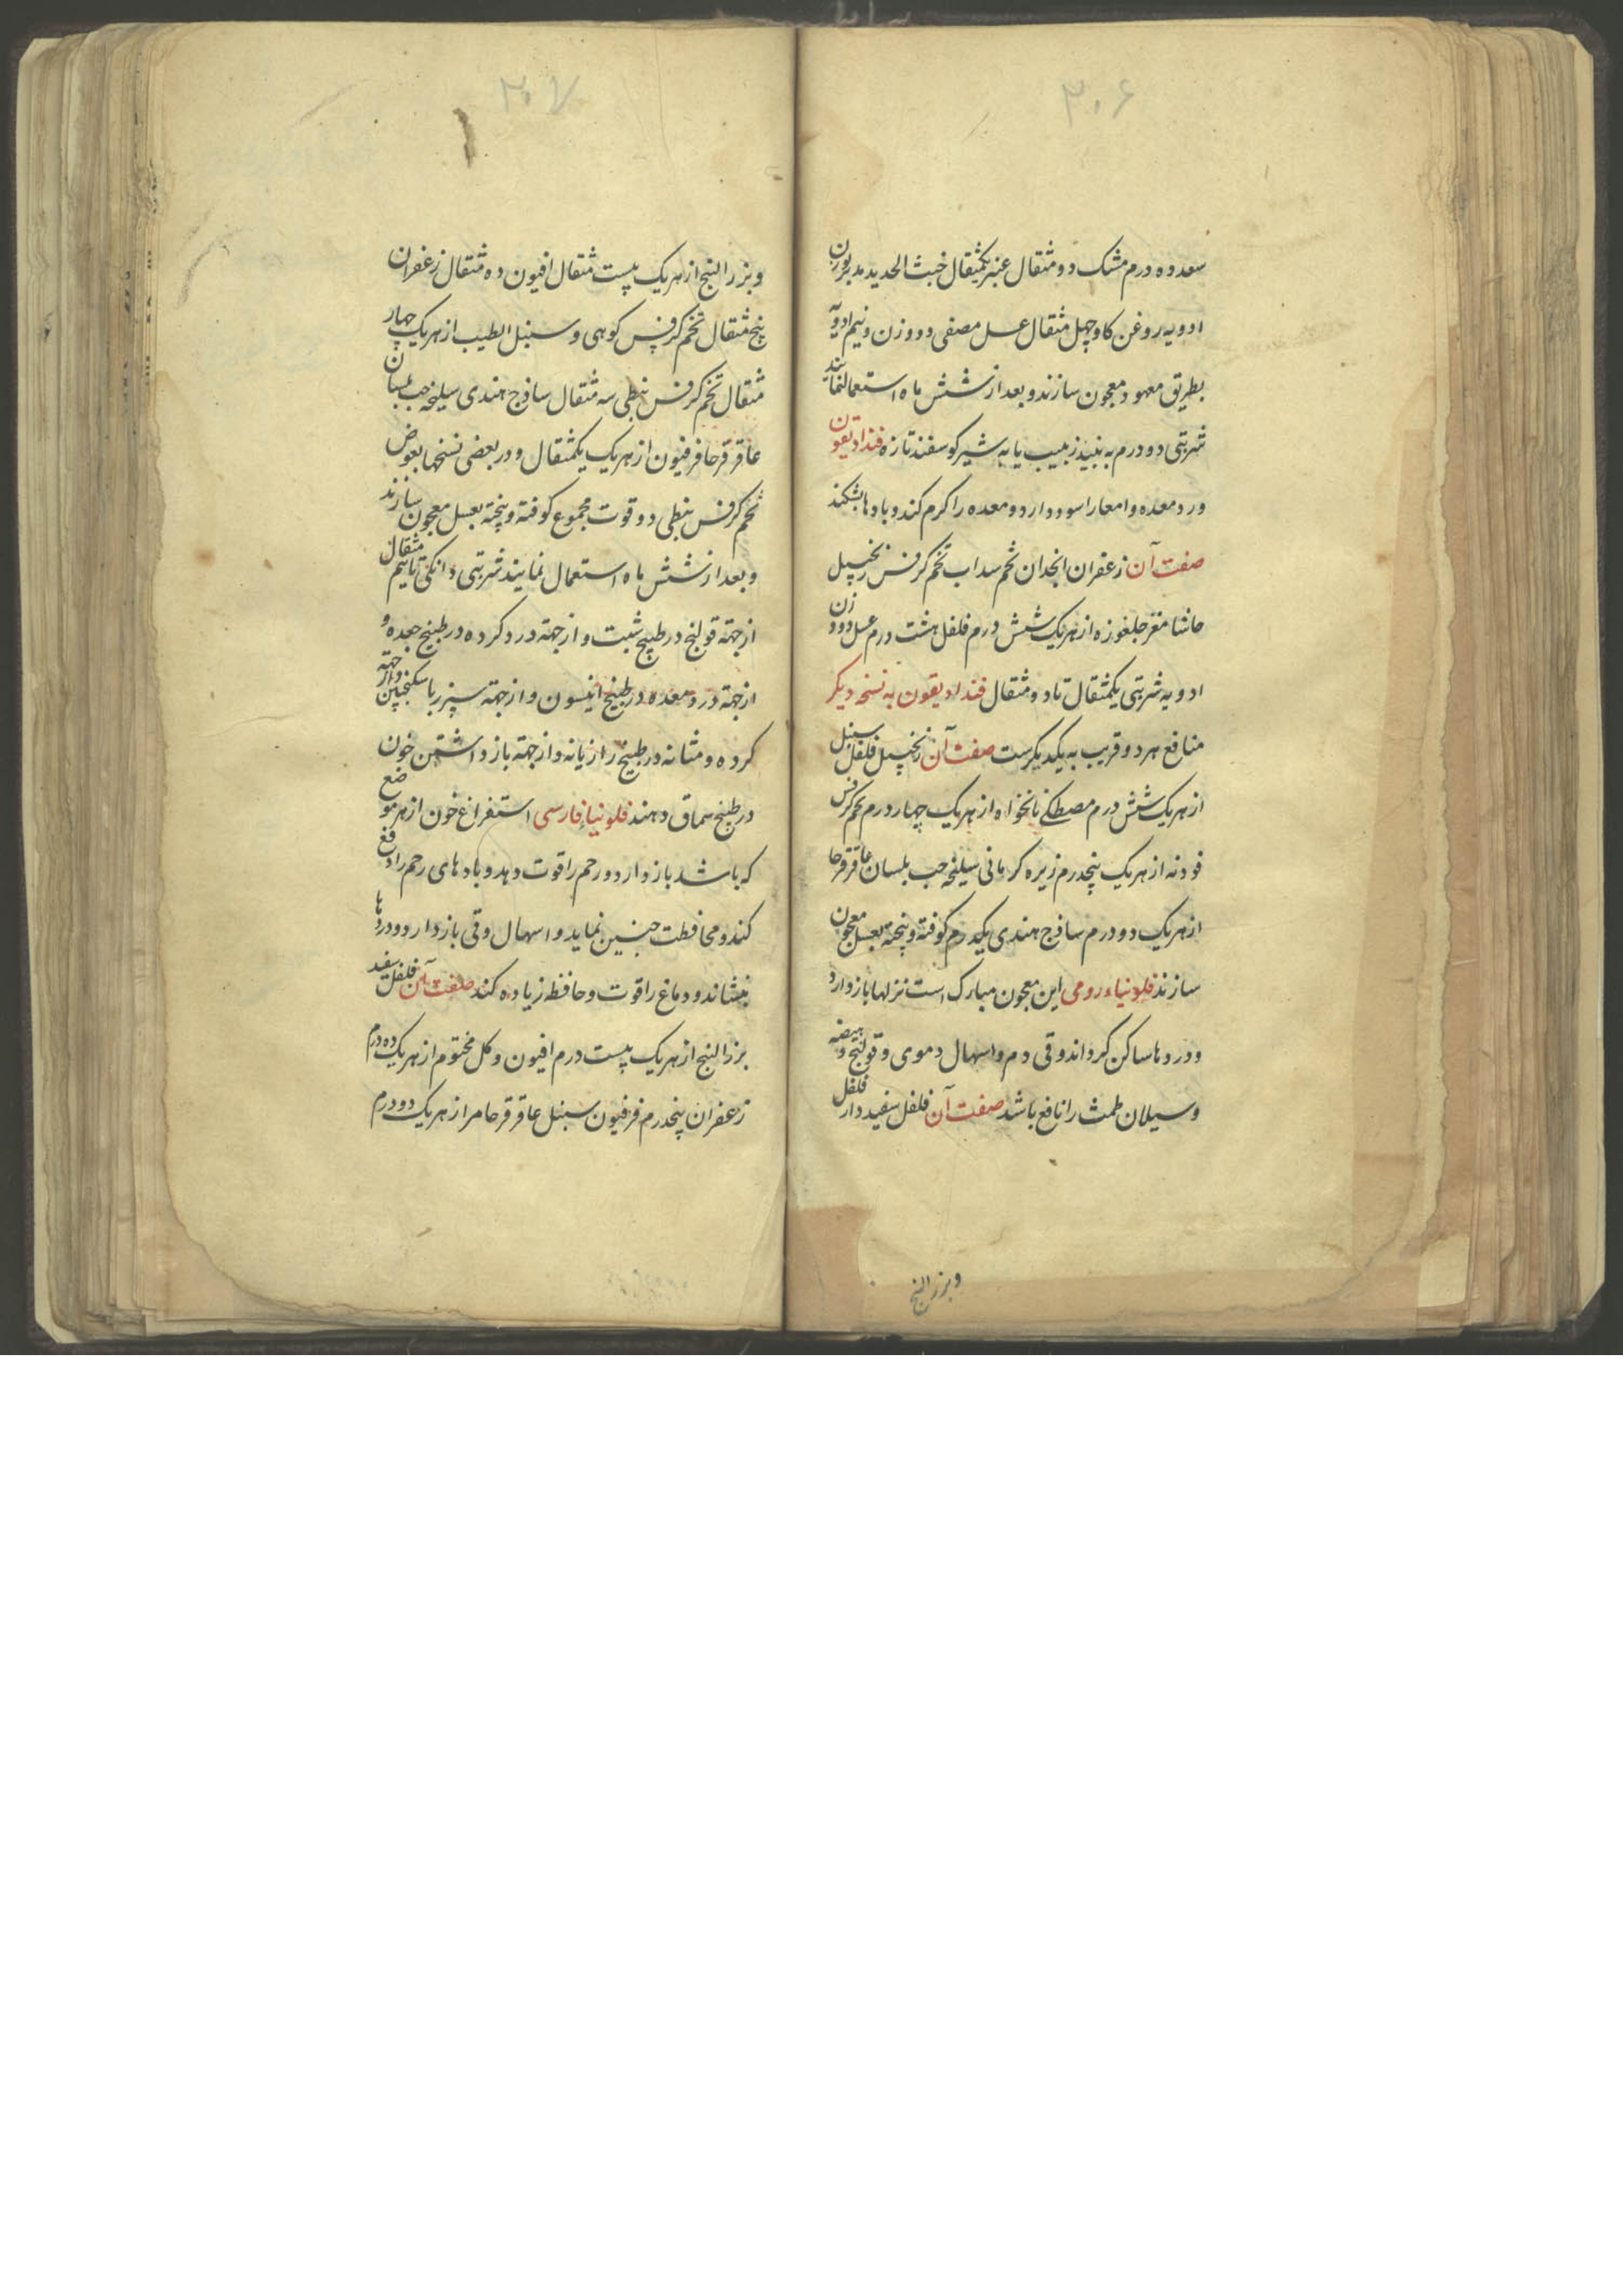 ۳۰۶
سعد ده درم مشک دو مثقال عنبر یکمثقال خبث الحدید مدبر بوزن
ادویه روغن کاو چهل مثقال عسل مصفی دو وزن و نیم ادویه
بطریق معهود معجون سازند و بعد از شش ماه استعمال نمایند
شربتی دو درم به نبیذ زبیب یا به شیر کوسفند تازه فندادیقون
درد معده و امعا را سود دارد و معده را کرم کند و بادها بشکند
صفت آن زعفران انجدان تخم سداب تخم کرفس زنجبیل
حاشا مغز جلغوزه از هر یک شش درم فلفل هشت درم عسل دو وزن
ادویه شربتی یکمثقال تا دو مثقال فندادیقون به نسخه دیکر
منافع هر دو قریب به یکدیکرست صفت آن زنجبیل فلفل سنبل
از هر یک شش درم مصطکی نانخواه از هر یک چهار درم تخم کرفس
فودنه از هر یک پنجدرم زیره کرمانی سلیخه حب بلسان عاقرقرحا
از هر یک دو درم ساذج هندی یکدرم کوفته و پخته بعسل معجون
سازند فلونیاء رومی این معجون مبارک است نزلها باز دارد
و دردها ساکن کرداند و قی دم و اسهال دموی و قولنج و هیضه
و سیلان طمث را نافع باشد صفت آن فلفل سفید دار فلفل
و بزر البنج
۳۰۷
و بزر البنج از هر یک بیست مثقال افیون ده مثقال زعفران
پنج مثقال تخم کرفس کوهی و سنبل الطیب از هر یک چهار
مثقال تخم کرفس نبطی سه مثقال ساذج هندی سلیخه حب بلسان
عاقرقرحا فرفیون از هر یک یکمثقال و در بعضی نسخها بعوض
تخم کرفس نبطی دوقوست مجموع کوفته و پخته بعسل معجون سازند
و بعد از شش ماه استعمال نمایند شربتی دانکی تا نیم مثقال
از جهة قولنج در طبیخ شبت و از جهة درد کرده در طبیخ جعده و
از جهة درد معده در طبیخ انیسون و از جهة سپرز با سکنجبین و از جهة
کرده و مثانه در طبیخ رازیانه و از جهة باز داشتن خون
در طبیخ سماق دهند فلونیاء فارسی استفراغ خون از هر موضع
که باشد باز دارد و رحم را قوت دهد و بادهای رحم را دفع
کند و محافظت جنین نماید و اسهال و قی باز دارد و دردها
بنشاند و دماغ را قوت و حافظه زیاده کند صفت آن فلفل سفید
بزر البنج از هر یک بیست درم افیون و کل مختوم از هر یک ده درم
زعفران پنجدرم فرفیون سنبل عاقرقرحا مر از هر یک دو درم